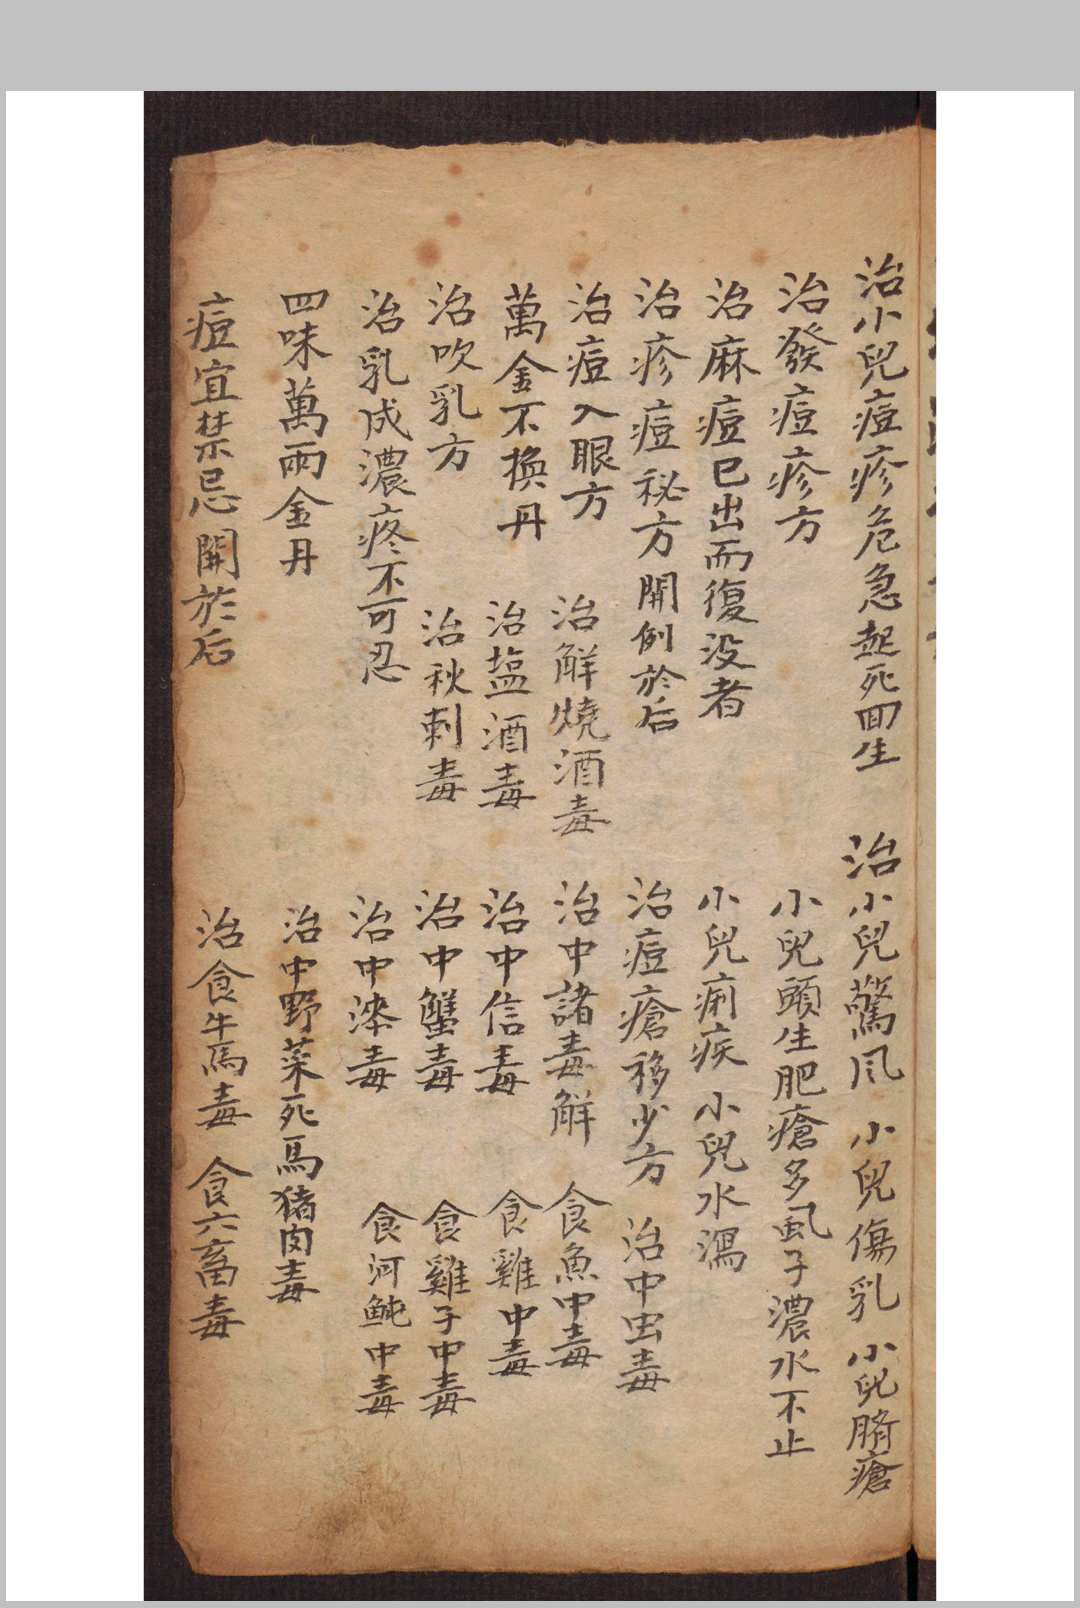 治小兒痘疹危急起死回生 治小兒驚风 小兒傷乳 小兒臍瘡
治發痘疹方 小兒頭生肥瘡多虱子濃水不止
治麻痘已出而復没者 小兒痢疾 小兒水瀉
治疹痘祕方開例於后 治痘瘡移少方 治中虫毒
治痘入眼方 治解燒酒毒 治中諸毒解 食魚中毒
萬金不换丹 治塩酒毒 治中信毒 食雞中毒
治吹乳方 治秋刺毒 治中蟹毒 食雞子中毒
治乳成濃疼不可忍 治中漆毒 食河魨中毒
四味萬両金丹 治中野菜死馬猪肉毒
痘宜禁忌開於后 治食牛馬毒 食六畜毒